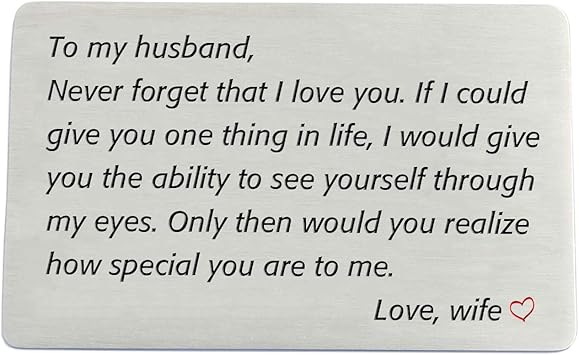 To my husband,
Never forget that I love you. If I could
give you one thing in life, I would give
you the ability to see yourself through
my eyes. Only then would you realize
how special you are to me.
Love, wife ♡